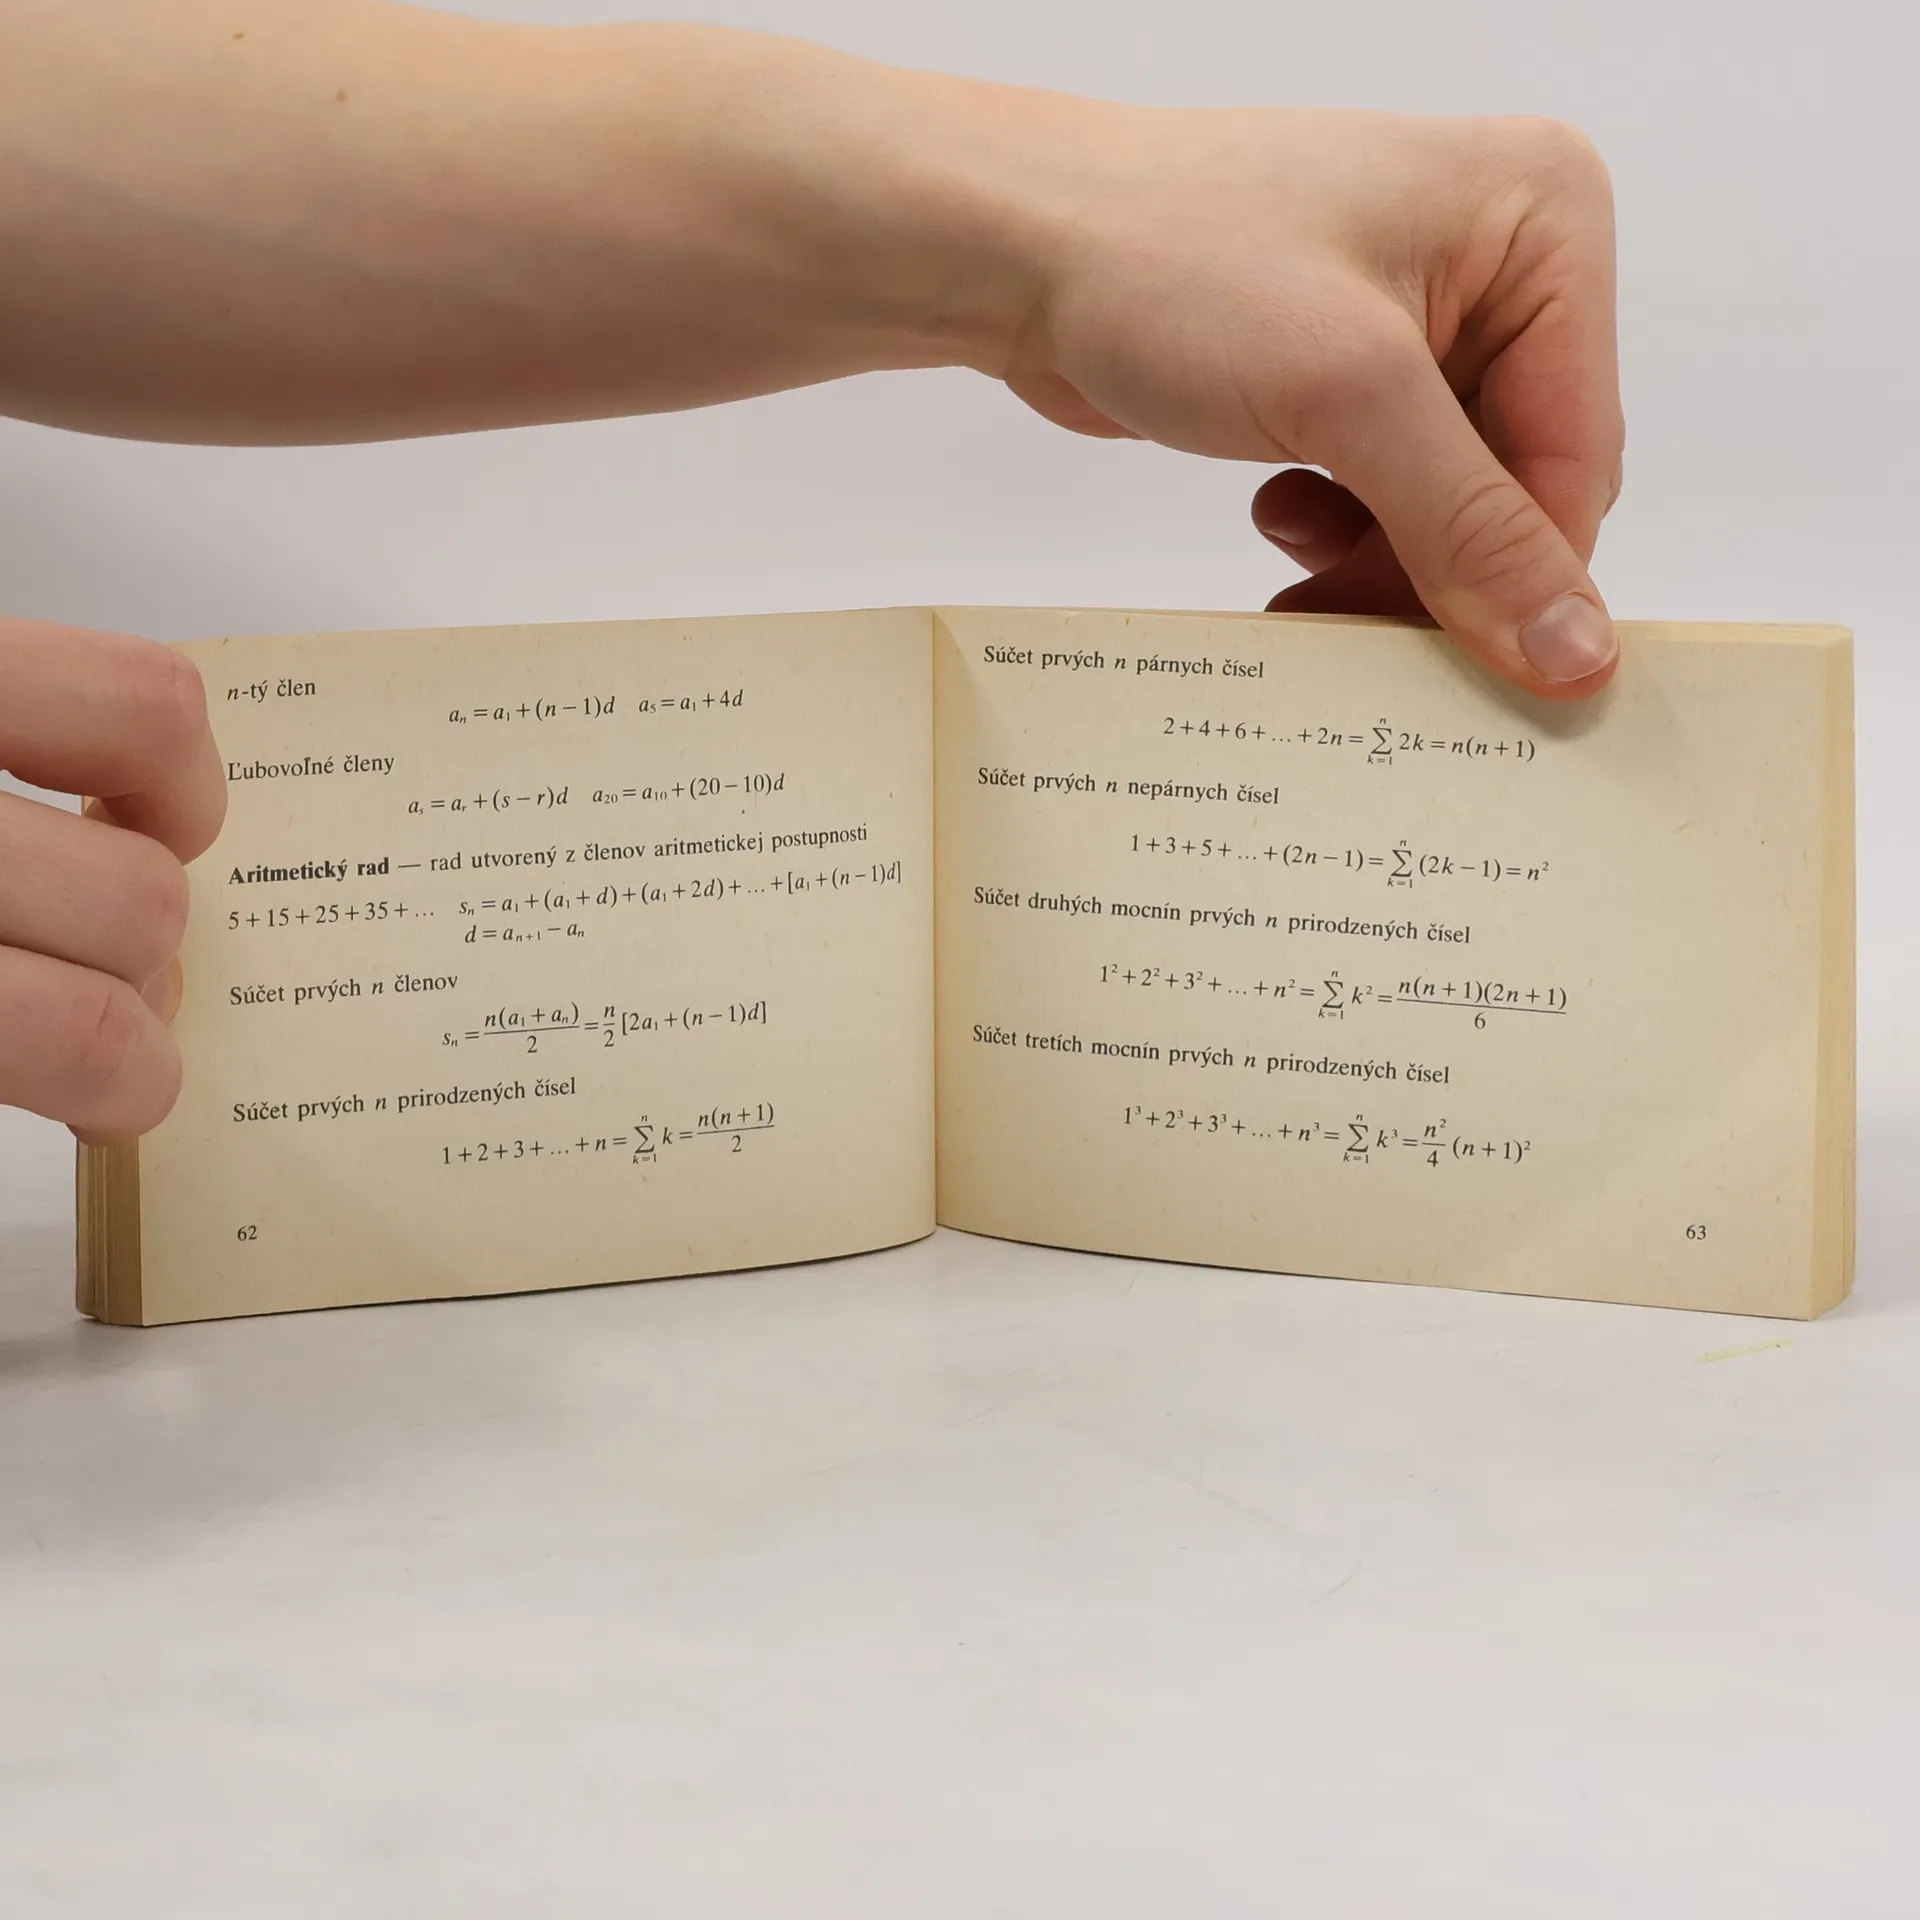 n-tý člen
aₙ = a₁ + (n − 1)d   a₅ = a₁ + 4d
Ľubovoľné členy
aₛ = aᵣ + (s − r)d   a₂₀ = a₁₀ + (20 − 10)d
Aritmetický rad — rad utvorený z členov aritmetickej postupnosti
5 + 15 + 25 + 35 + ...   sₙ = a₁ + (a₁ + d) + (a₁ + 2d) + ... + [a₁ + (n − 1)d]
d = aₙ₊₁ − aₙ
Súčet prvých n členov
sₙ = n(a₁ + aₙ)/2 = n/2 [2a₁ + (n − 1)d]
Súčet prvých n prirodzených čísel
1 + 2 + 3 + ... + n = ∑ₖ₌₁ⁿ k = n(n + 1)/2
62
Súčet prvých n párnych čísel
2 + 4 + 6 + ... + 2n = ∑ₖ₌₁ⁿ 2k = n(n + 1)
Súčet prvých n nepárnych čísel
1 + 3 + 5 + ... + (2n − 1) = ∑ₖ₌₁ⁿ (2k − 1) = n²
Súčet druhých mocnín prvých n prirodzených čísel
1² + 2² + 3² + ... + n² = ∑ₖ₌₁ⁿ k² = n(n + 1)(2n + 1)/6
Súčet tretích mocnín prvých n prirodzených čísel
1³ + 2³ + 3³ + ... + n³ = ∑ₖ₌₁ⁿ k³ = n²/4 (n + 1)²
63